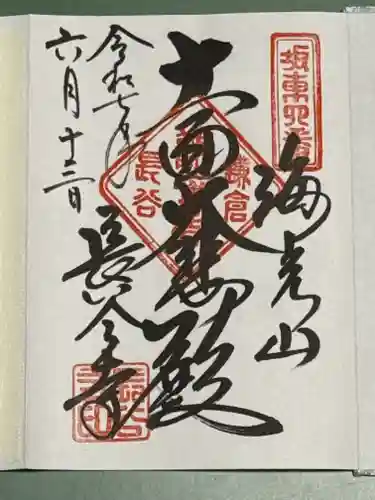 坂東四番
海光山
十一面大悲殿
鎌倉
長谷
令和七年
六月十三日
長谷寺